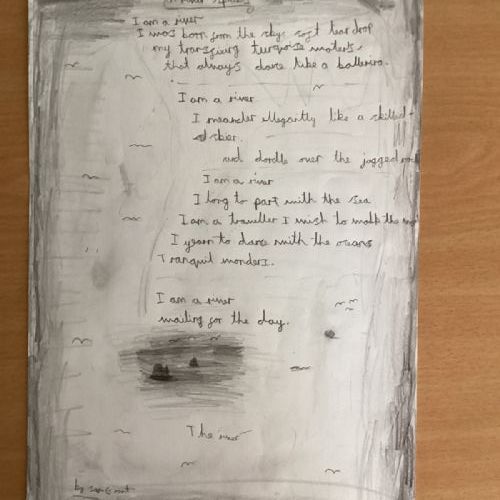 A river speaks
I am a river
I was born from the skys soft tear drop
my transfixing turquoise waters,
that always dance like a ballerina.
I am a river
I meander ellegantly like a skilled
skier.
and dordle over the jagged
I am a river
I long to part with the sea
I am a traveller I wish to walk the
I yearn to dance with the oceans
Tranquil wonders.
I am a river
waiting for the day.
The river
by